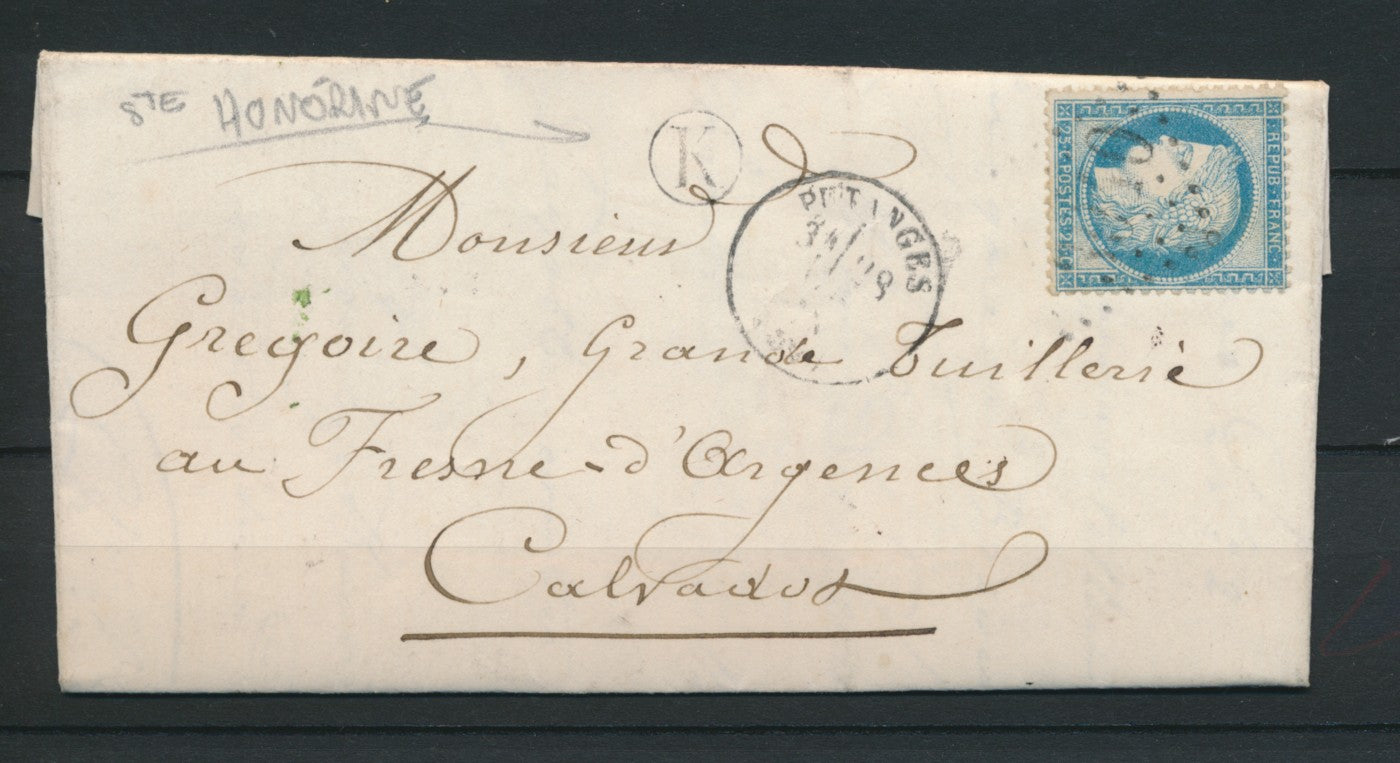 STE HONORINE
K
PUTANGES
REPUB·FRANC
25 c POSTES 25 c
Monsieur
Gregoire, Grande Tuillerie
au Fresne-d'Argences
Calvados